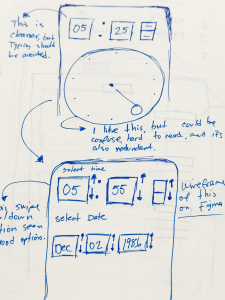 This is
cleaner, but
Typing should
be avoided.
05 : 25
I like this, but could be
confuse, hard to read, and it's
also redundant.
select time
05 : 55
swipe
down
option seem
good option.
Wireframe
of this
on Figma
select Date
Dec 02 1986